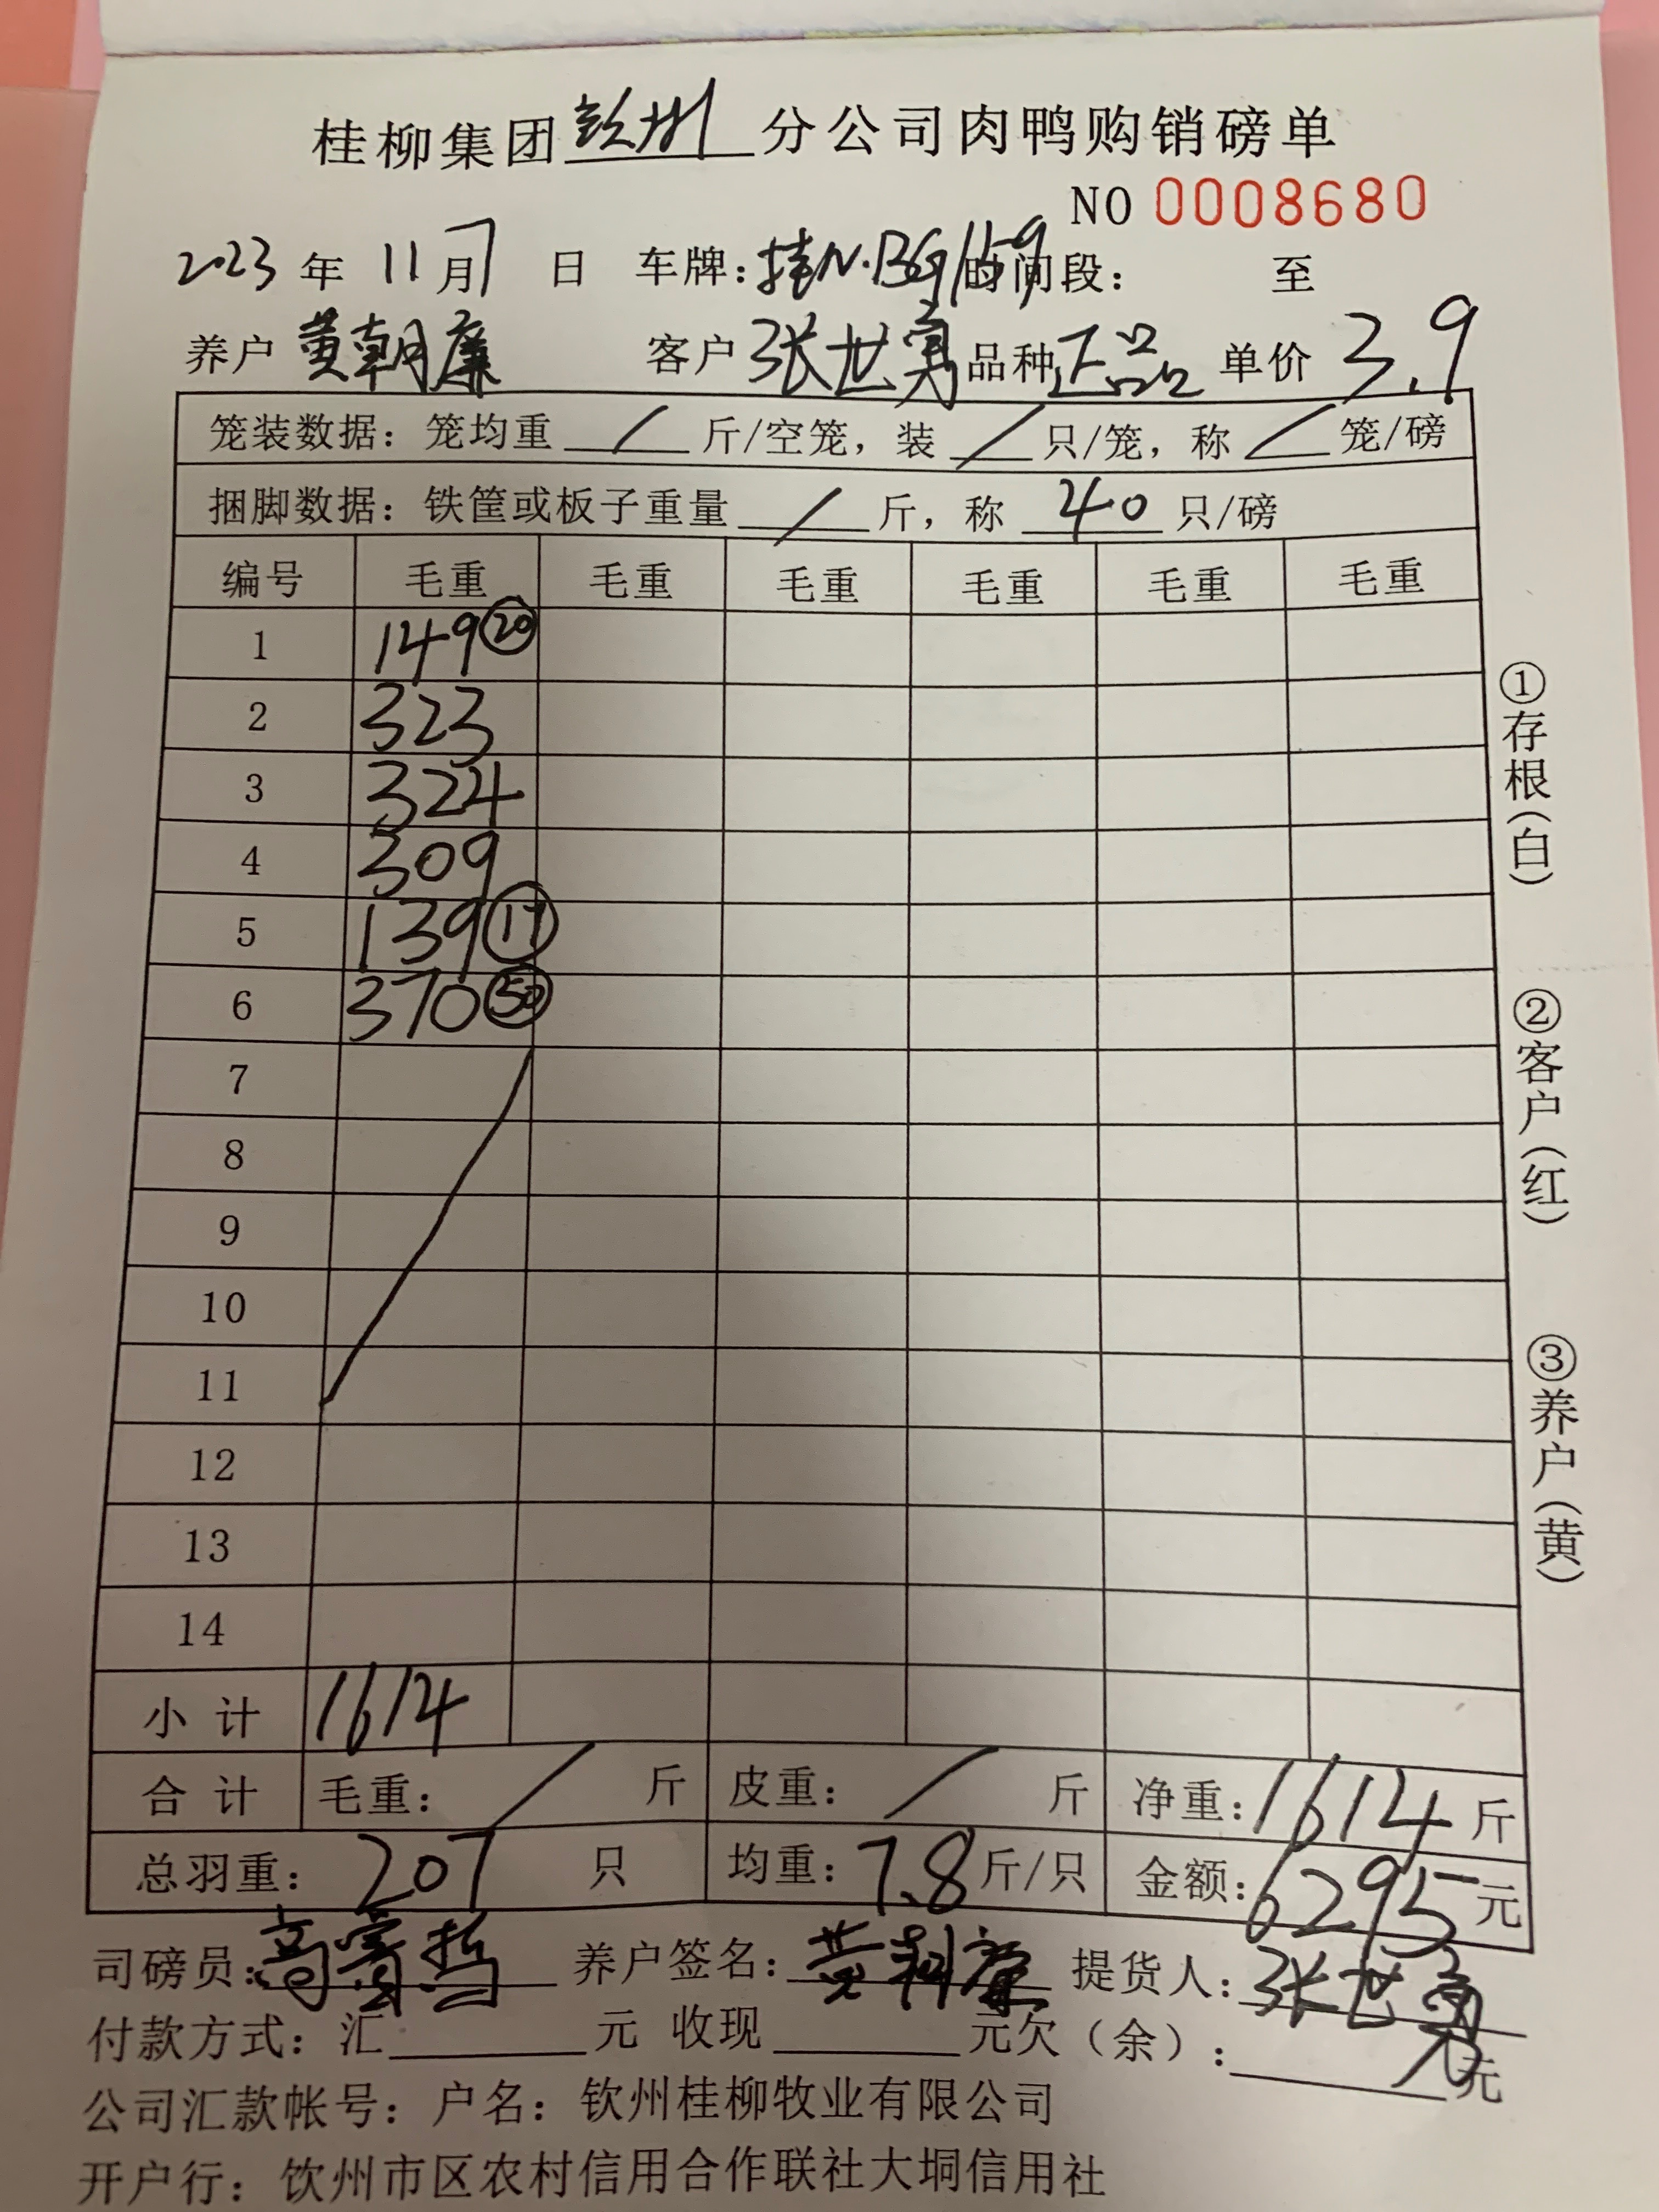 桂柳集团钦州分公司肉鸭购销磅单
NO 0008680
2023年11月7日 车牌:桂N·BG1159 时间段: 至
养户 黄朝廉 客户 张世寡 品种 正品 单价 3.9
笼装数据: 笼均重 / 斤/空笼, 装 / 只/笼, 称 / 笼/磅
捆脚数据: 铁筐或板子重量 / 斤, 称 40 只/磅
编号 毛重 毛重 毛重 毛重 毛重 毛重
1 149 ⑳
2 323
3 324
4 309
5 139 ⑰
6 370 ㊿
7
8
9
10
11
12
13
14
小计 1614
合计 毛重: / 斤 皮重: / 斤 净重: 1614 斤
总羽重: 207 只 均重: 7.8 斤/只 金额: 6295 元
司磅员: 养户签名: 提货人: 张世
付款方式: 汇 元 收现 元欠(余): 元
公司汇款帐号: 户名: 钦州桂柳牧业有限公司
开户行: 饮州市区农村信用合作联社大垌信用社
①存根(白)
②客户(红)
③养户(黄)